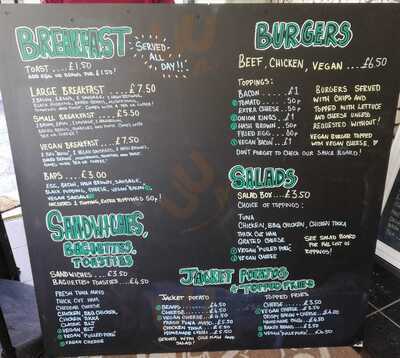 BREAKFAST
SERVED
ALL
DAY!!
TOAST....£1.50
ADD EGG OR BEANS FOR £1.50!
LARGE BREAKFAST .... £7.50
SMALL BREAKFAST .... £5.50
VEGAN BREAKFAST .... £7.50
BAPS .... £3.00
EGG, BACON, HASH BROWN, SAUSAGE,
BLACK PUDDING, CHEESE, VEGAN BACON,
VEGAN SAUSAGE
INCLUDES 1 TOPPING, EXTRA TOPPINGS 50p!
SANDWICHES,
BAGUETTES,
TOASTIES
SANDWICHES.... £3.50
BAGUETTES + TOASTIES .... £4.50
FRESH TUNA MAYO
THICK CUT HAM
CHEDDAR CHEESE
CHICKEN BBQ CHICKEN
CHICKEN TIKKA
CLASSIC BLT
VEGAN BLT
VEGAN "PULLED PORK"
VEGAN CHEESE
BURGERS
BEEF, CHICKEN, VEGAN .... £6.50
TOPPINGS:
BACON .... £1
TOMATO .... 50p
EXTRA CHEESE .. 50p
ONION RINGS .. £1
HASH BROWN .. 50p
FRIED EGG .. 80p
VEGAN BACON .. £1
BURGERS SERVED
WITH CHIPS AND
TOPPED WITH LETTUCE
AND CHEESE UNLESS
REQUESTED WITHOUT!
VEGAN BURGER TOPPED
WITH VEGAN CHEESE.
DON'T FORGET TO CHECK OUR SAUCE BOARD!
SALADS
SALAD BOX ..£3.50
CHOICE OF TOPPINGS:
TUNA
CHICKEN, BBQ CHICKEN, CHICKEN TIKKA
THICK CUT HAM
GRATED CHEESE
VEGAN "PULLED PORK"
VEGAN CHEESE
SEE SALAD BOARD
FOR FULL LIST OF
TOPPINGS!
JACKET POTATOES
+ TOPPED FRIES
JACKET POTATO
BEANS .... £4.50
CHEESE .... £4.50
VEGAN CHEESE .. £4.50
FRESH TUNA MAYO .. £5.50
CHICKEN TIKKA .... £5.50
VEGAN "PULLED PORK" .. £5.50
SERVED WITH COLESLAW AND
SALAD!
TOPPED FRIES
CHEESE
VEGAN CHEESE
CRISPY BACON + CHEESE